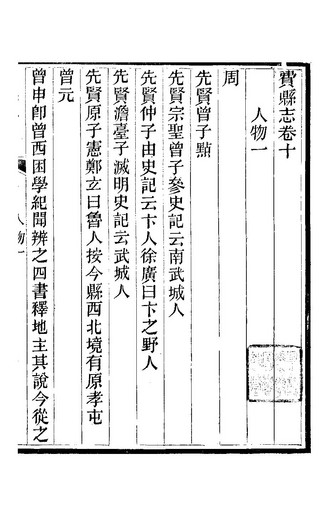 費縣志卷十
人物一
周
先賢曾子點
先賢宗聖曾子參史記云南武城人
先賢仲子由史記云卞人徐廣曰卞之野人
先賢澹臺子滅明史記云武城人
先賢原子憲鄭玄曰魯人按今縣西北境有原孝屯
曾元
曾申卽曾西困學紀聞辨之四書釋地主其說今從之
人物一